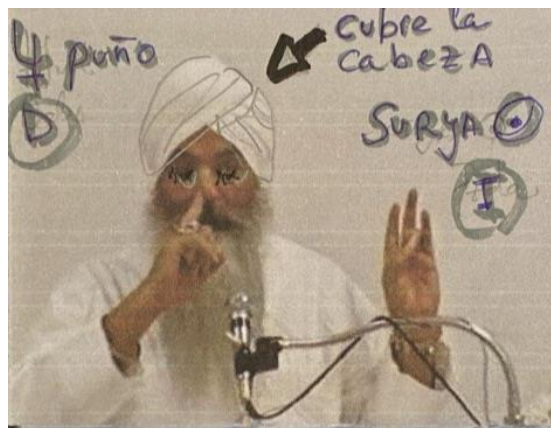 4 puño
D
cubre la
cabezA
SURYA
I